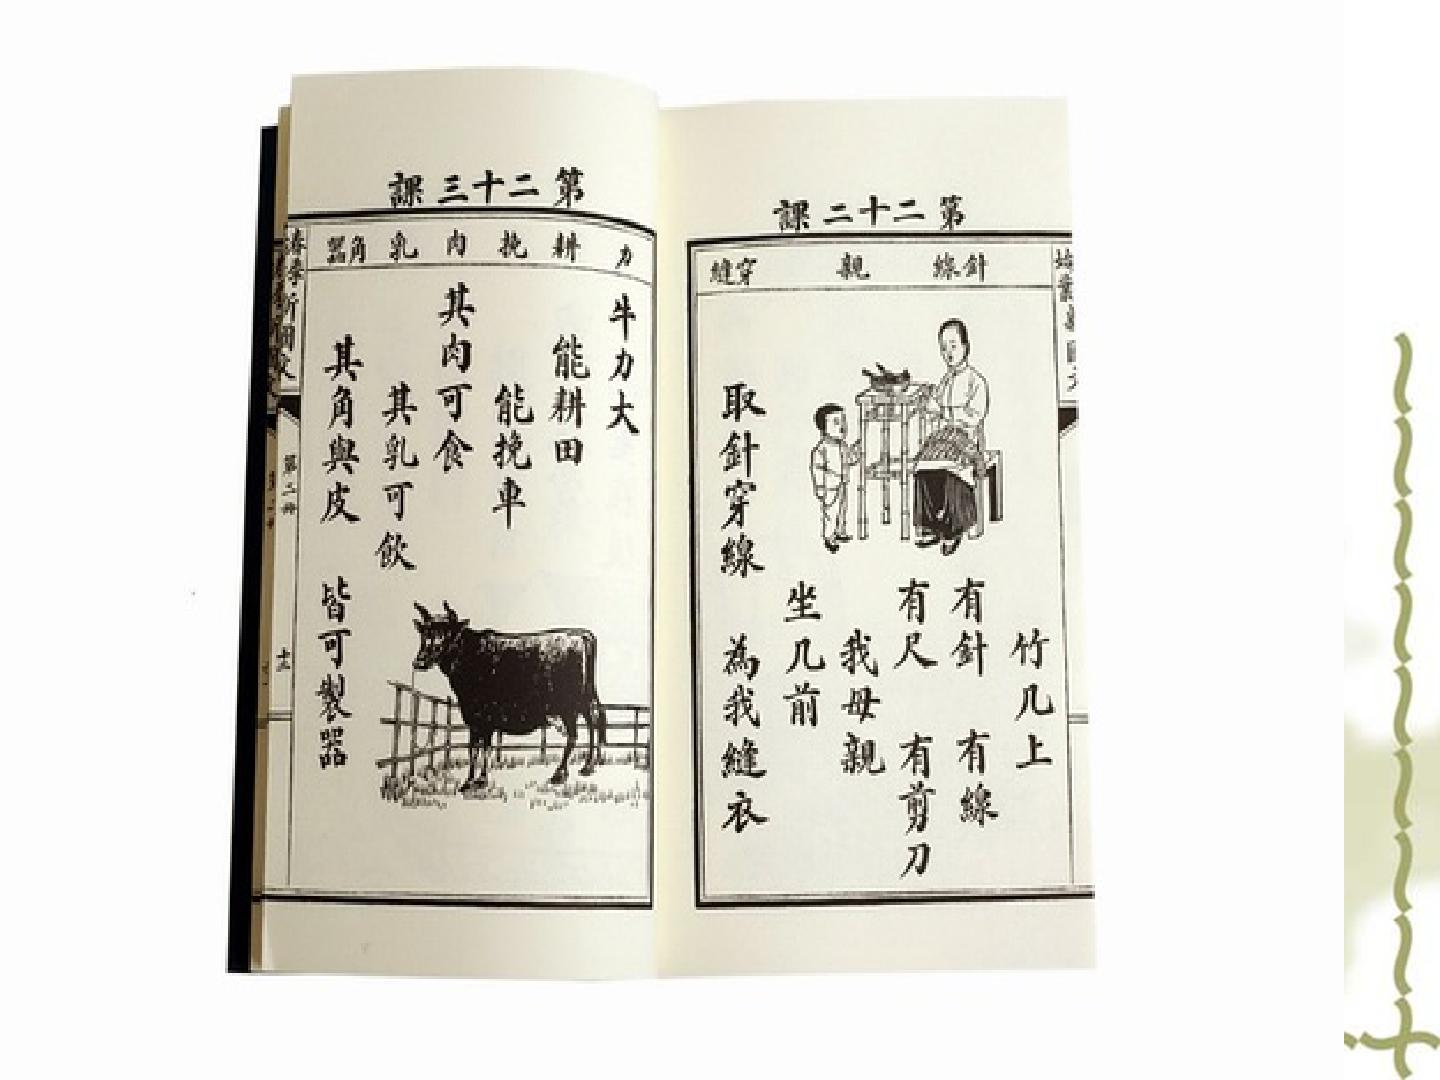 第二十二課
針線 親 穿縫
竹几上
有針 有線
有尺 有剪刀
我母親
坐几前
取針穿線 為我縫衣
第二十三課
力 耕 挽 肉 乳 角器
牛力大
能耕田
能挽車
其肉可食
其乳可飲
其角與皮 皆可製器
第二冊
十三